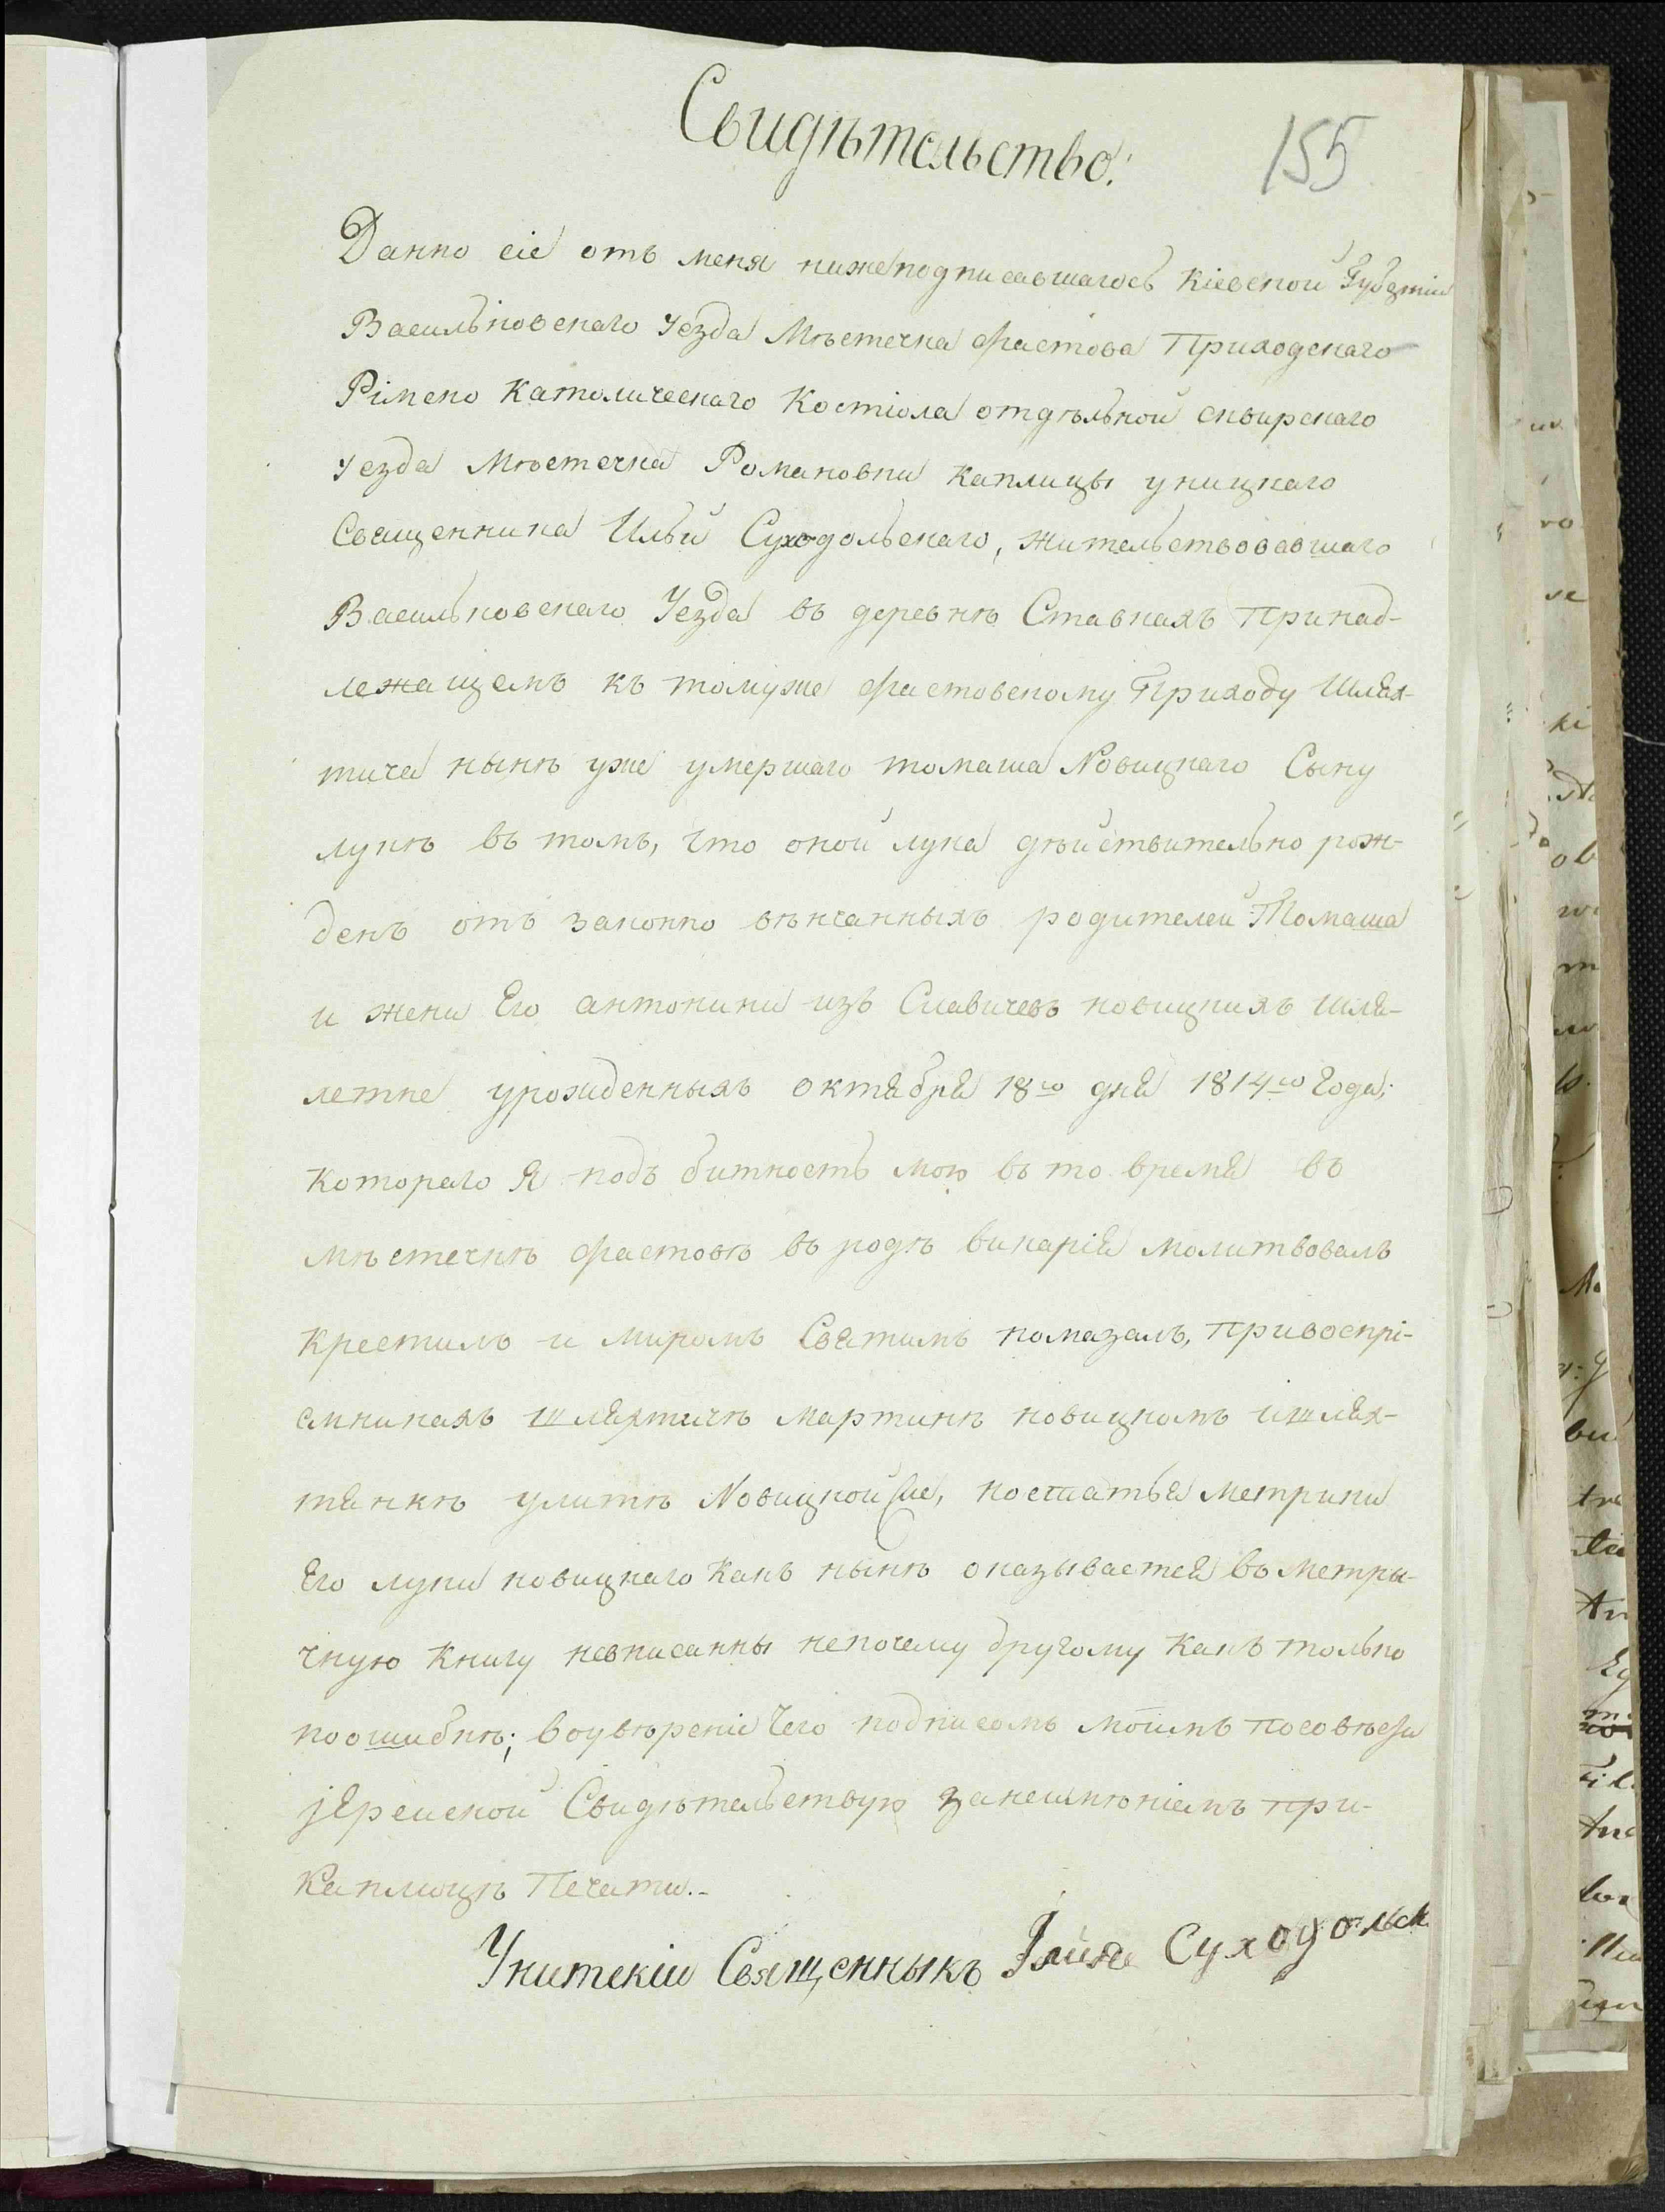 Свидѣтельство:
155
Данно сіе отъ меня нижеподписавшагось Кіевской Губерніи
Васильковскаго Уезда Мѣстечка Фастова Приходскаго
Рімско Католическаго Костіола отдѣльной сквирскаго
Уезда Мѣстечка Романовки Каплицы уницкаго
Священника Ильи Суходольскаго, жительствовавшаго
Васильковскаго Уезда въ деревнѣ Ставкахъ Принад-
лежащемъ къ томуже Фастовскому Приходу Шлях-
тича нынѣ уже умершаго томаша Новицкаго Сыну
лукѣ въ томъ, что оной лука дѣйствительно рож-
денъ отъ законно вѣнчанныхъ родителей Томаша
и жени Его антонини изъ Славичевъ новицкихъ шля-
летне урожденныхъ октября 18го дня 1814го Года;
которого Я подъ битность мою въ то время въ
мѣстечкѣ Фастовѣ въ родѣ викарія молитвовалъ
крестилъ и миромъ Святимъ помазалъ, привоспрі-
емникахъ шляхтичѣ мартинѣ новицкомъ ишлях-
тянкѣ улитѣ Новицкой сіе, постатья метрики
Его луки новицкаго Какъ нынѣ оказывается въ метри-
чную Книгу невписанны непочему другому какъ только
поошибкѣ; воувѣреніе Чего подписомъ моимъ посовѣсти
јЕрейской Свидѣтельствую занеимѣніемъ при
Каплицѣ Печати.-
Унитскій Священныкъ Ілия Суходольск